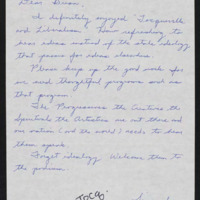 Dear Brian,
I definitely enjoyed "Tocqueville
and Liberalism." How refreshing to
hear ideas instead of the stale ideology
that passes for ideas elsewhere.
Please keep up the good work for
we need thoughtful programs such as
that program.
The Progressives the Creatives the
Spirituals the Artistics are out there and
our nation (and the world) needs to hear
them speak.
Forget ideology. Welcome them to
the